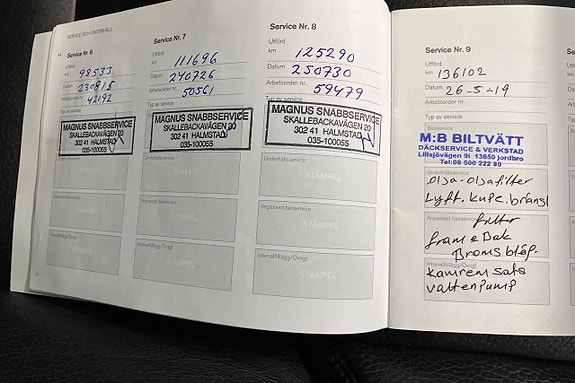 SERVICE OCH UNDERHÅLL
Service Nr. 6
Utförd
km 98533
Datum 230815
Arbetsorder nr. 42192
Typ av service
MAGNUS SNABBSERVICE
SKALLEBACKAVÄGEN 20
302 41 HALMSTAD
035-100055
Underhållsservice
STÄMPEL
Anpassad basservice
STÄMPEL
Intervalltillägg/Övrigt
STÄMPEL
Service Nr. 7
Utförd
km 111696
Datum 240726
Arbetsorder nr. 50561
Typ av service
MAGNUS SNABBSERVICE
SKALLEBACKAVÄGEN 20
302 41 HALMSTAD
035-100055
Underhållsservice
STÄMPEL
Anpassad basservice
STÄMPEL
Intervalltillägg/Övrigt
STÄMPEL
Service Nr. 8
Utförd
km 125290
Datum 250730
Arbetsorder nr. 59479
Typ av service
MAGNUS SNABBSERVICE
SKALLEBACKAVÄGEN 20
302 41 HALMSTAD
035-100055
Underhållsservice
STÄMPEL
Anpassad basservice
STÄMPEL
Intervalltillägg/Övrigt
STÄMPEL
Service Nr. 9
Utförd
km 136102
Datum 26-5-19
Arbetsorder nr.
Typ av service
Basservice
M:B BILTVÄTT
DÄCKSERVICE & VERKSTAD
Lillsjövägen 9i 13650 jordbro
Tel:08 500 222 80
Underhållsservice
olja-oljafilter
Lyft. kupe. bränsl
Anpassad basservice
filter
fram & Bak
Broms bläg.
Intervalltillägg/Övrigt
kamrem sats
vattenpump